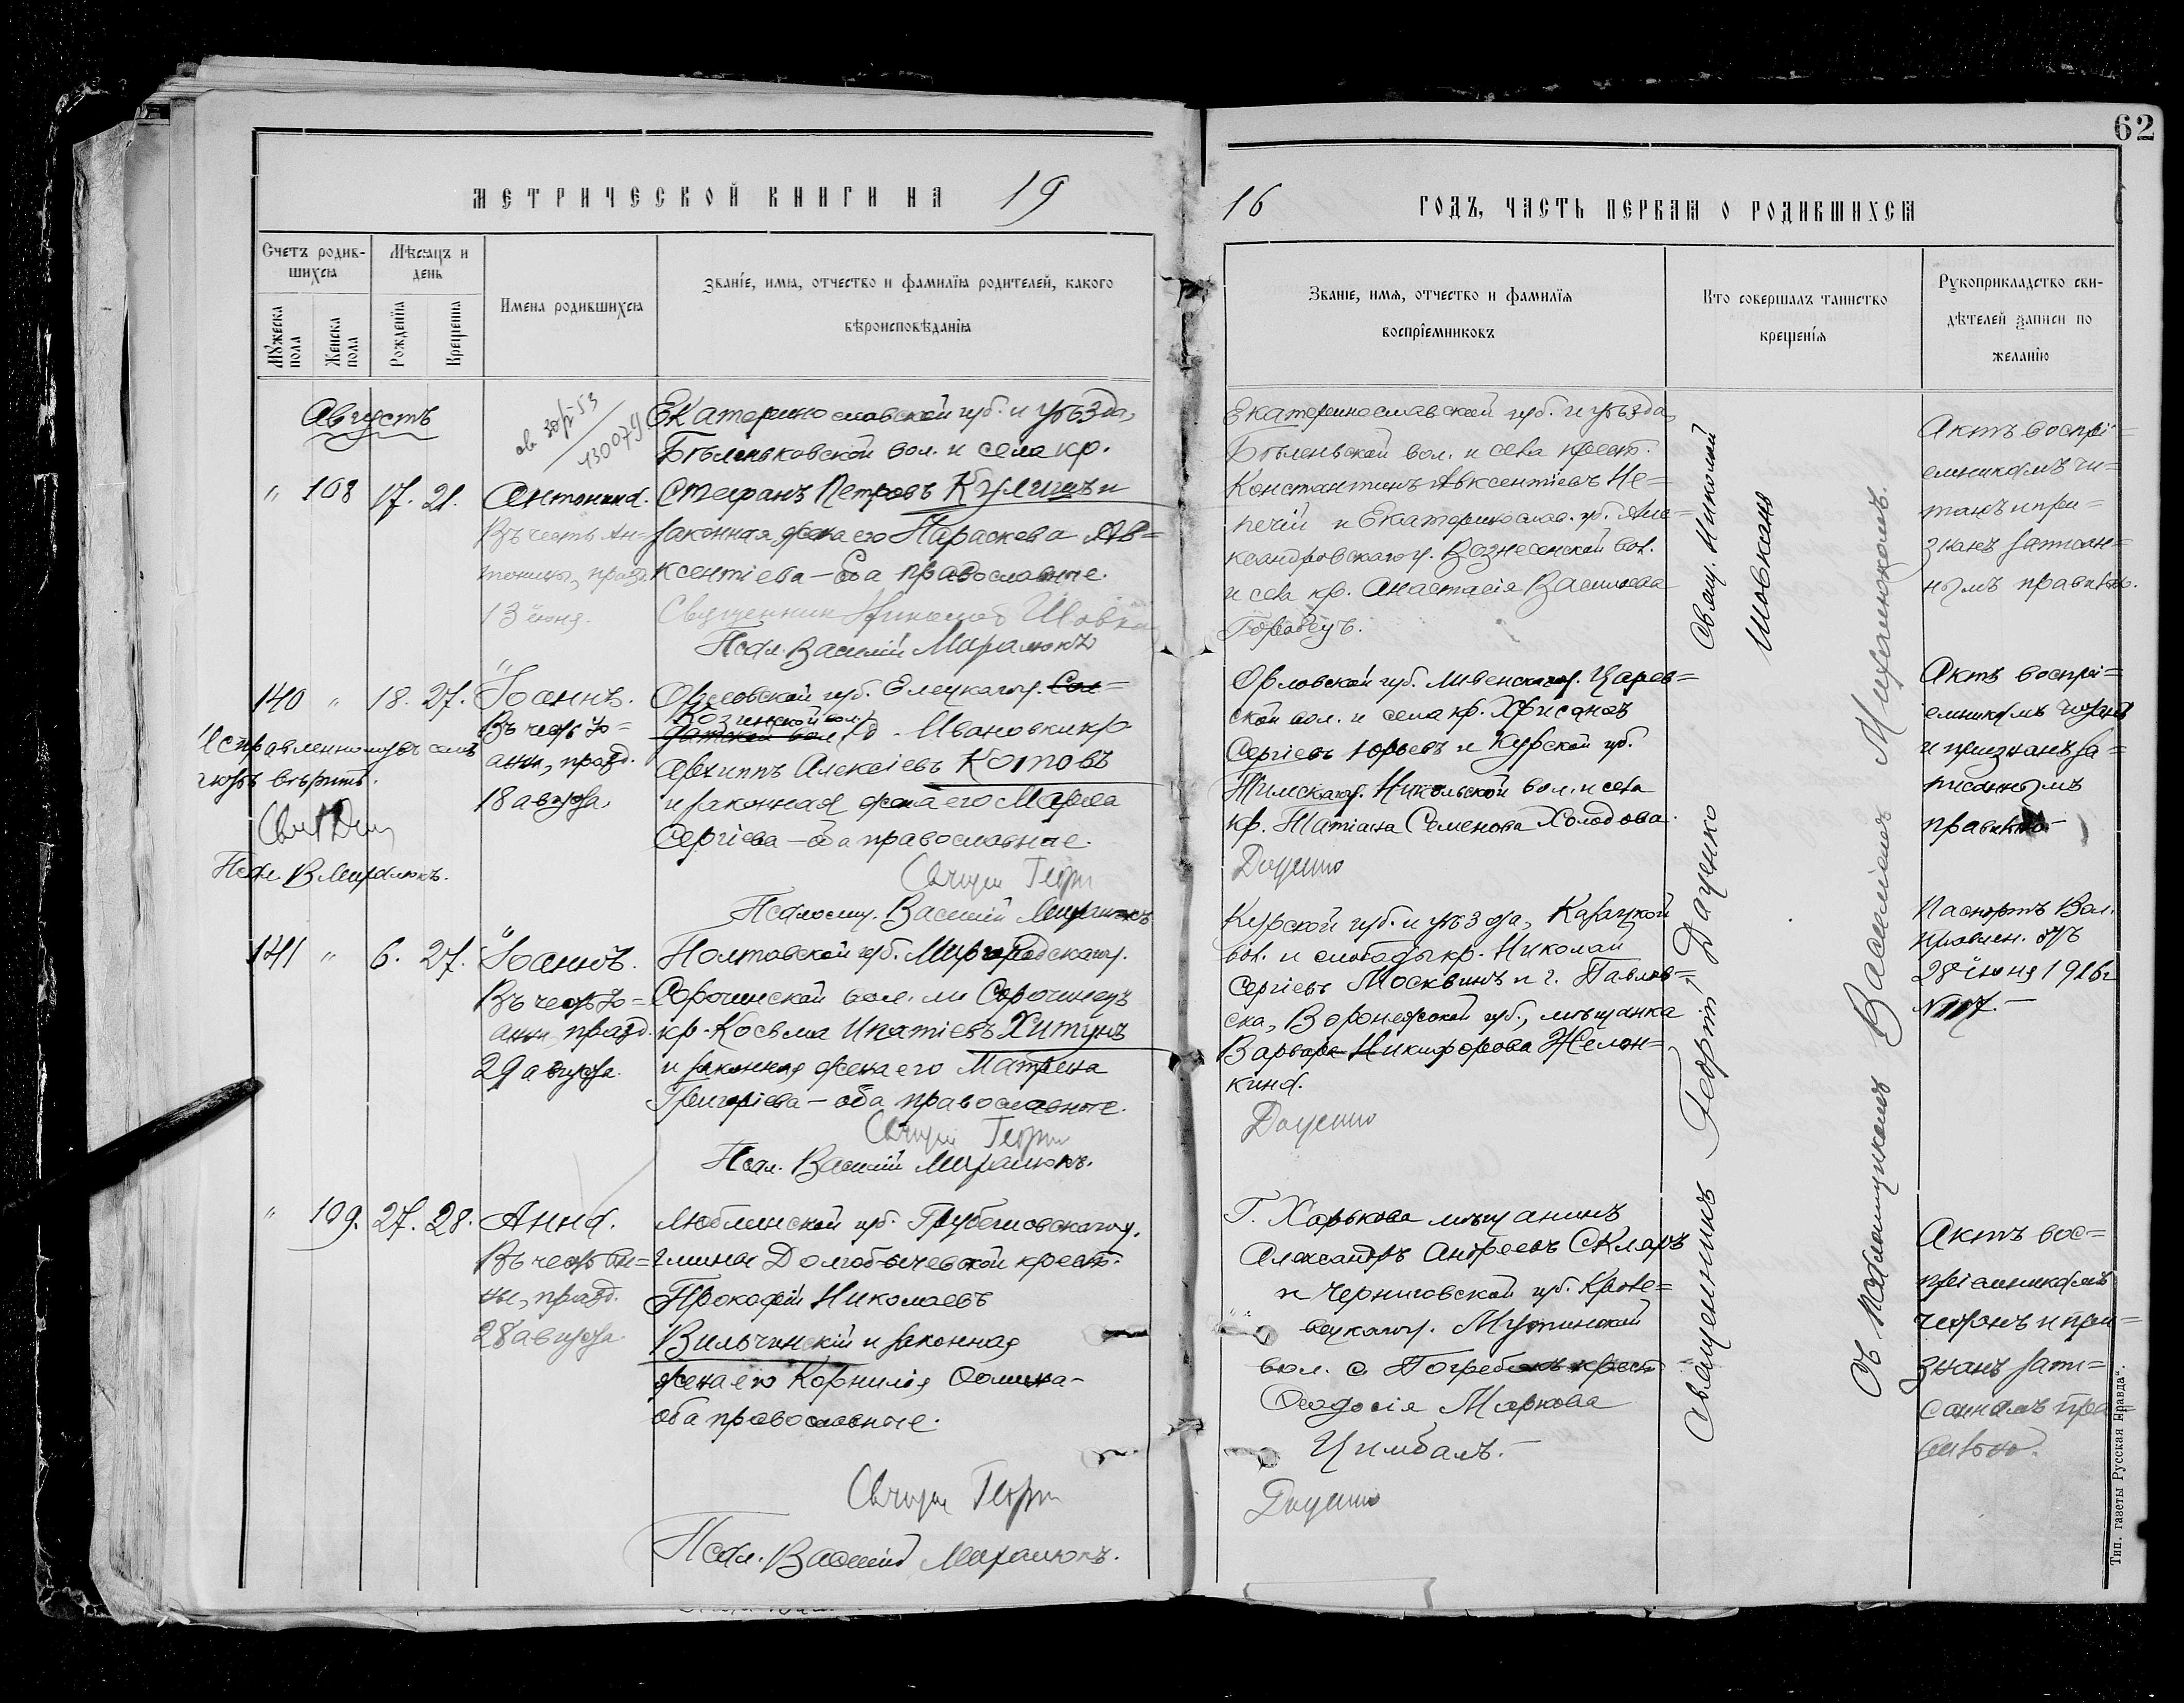 62
МЕТРИЧЕСКОЙ КНИГИ НА 1916 ГОДЪ, ЧАСТЬ ПЕРВАЯ О РОДИВШИХСЯ
Счетъ родив-
шихся
Мужеска
пола
Женска
пола
Мѣсяцъ и
день
Рожденія
Крещенія
Имена родившихся
Званіе, имя, отчество и фамилія родителей, какого
вѣроисповѣданія
Званіе, имя, отчество и фамилія
воспріемниковъ
Кто совершалъ таинство
крещенія
Рукоприкладство сви-
дѣтелей записи по
желанію
Августъ
" 108 17. 21.
Антонина.
Въ честь Ан-
тонины, празд.
13 іюня.
Екатеринославской губ. и уѣзда,
Бѣленьковской вол. и села кр.
Стефанъ Петровъ Кулишъ и
законная жена его Параскева Ав=
ксентіева – оба православные.
Священникъ Николай Шовкань
Псал. Василій Миралюкъ
Екатеринославской губ. и уѣзда,
Бѣленьской вол. и села крест.
Константинъ Авксентіевъ Не=
печій и Екатеринослав. губ. Але=
ксандровскаго у. Вознесенской вол.
и села кр. Анастасія Васильева
Горобецъ.
Свящ. Николай
Шовкань
Актъ воспрі=
емникамъ чи=
танъ и при=
знанъ записан=
нымъ правильно.
140 " 18. 27.
Іоаннъ.
Въ честь Іо=
анн, празд.
18 августа.
Исправленному въ семъ
вѣрить.
Псал. В Миралюкъ.
Орловской губ. Елецкаго у. Сол=
Козинской вол.
датской вол. д. Ивановки кр
Архиппъ Алексіевъ Котовъ
и законная жена его Марѳа
Сергіева – оба православные.
Священ Георгій
Псаломщ. Василій Миралюкъ
Орловской губ. Ливенскаго у. Царев=
ской вол. и села кр. Хрисанѳъ
Сергіевъ Юрьевъ и Курской губ.
Тимскаго у. Никольской вол. и села
кр. Татіана Семенова Холодова.
Даценко
Актъ воспрі=
емникамъ читанъ
и признанъ за=
писаннымъ
правильно
141 " 6. 27.
Іоаннъ.
Въ честь Іо=
анн, празд.
29 августа.
Полтавской губ. Миргородскаго у.
Сорочинской вол. м. Сорочинецъ
кр. Косьма Ипатіевъ Хитунъ
и законная жена его Матрена
Григоріева – оба православные.
Священ Георгій
Псал. Василій Миралюкъ.
Курской губ. и уѣзда, Кагацкой
вол. и слободы кр. Николай
Сергіевъ Москвинъ и г. Павлов=
ска, Воронежской губ., мѣщанка
Варвара Никифорова Желон=
кина.
Даценко
Паспортъ Вол.
Правлен. отъ
28 іюня 1916 г
№ 117.–
" 109. 27. 28.
Анна.
Въ честь Ан=
ны, празд.
28 августа.
Люблинской губ. Грубешовскаго у.
гмины Долгобычевской крест.
Прокофій Николаевъ
Вильчинскій и законная
жена его Корнилія Ѳомина –
оба православные.
Священ Георгій
Псал. Василій Миралюкъ.
Г. Харькова мѣщанинъ
Александръ Андреевъ Скляръ
и Черниговской губ. Кроле=
вецкаго у. Мутинской
вол. с. Погребковъ крест
Ѳеодосія Маркова
Цимбалъ.–
Даценко
Актъ вос=
пріемникамъ
читанъ и при=
знанъ запи=
саннымъ пра=
вильно.
Священникъ Георгій Даценко
Съ псаломщикомъ Василіемъ Миралюкомъ.
Тип. газеты Русская Правда".